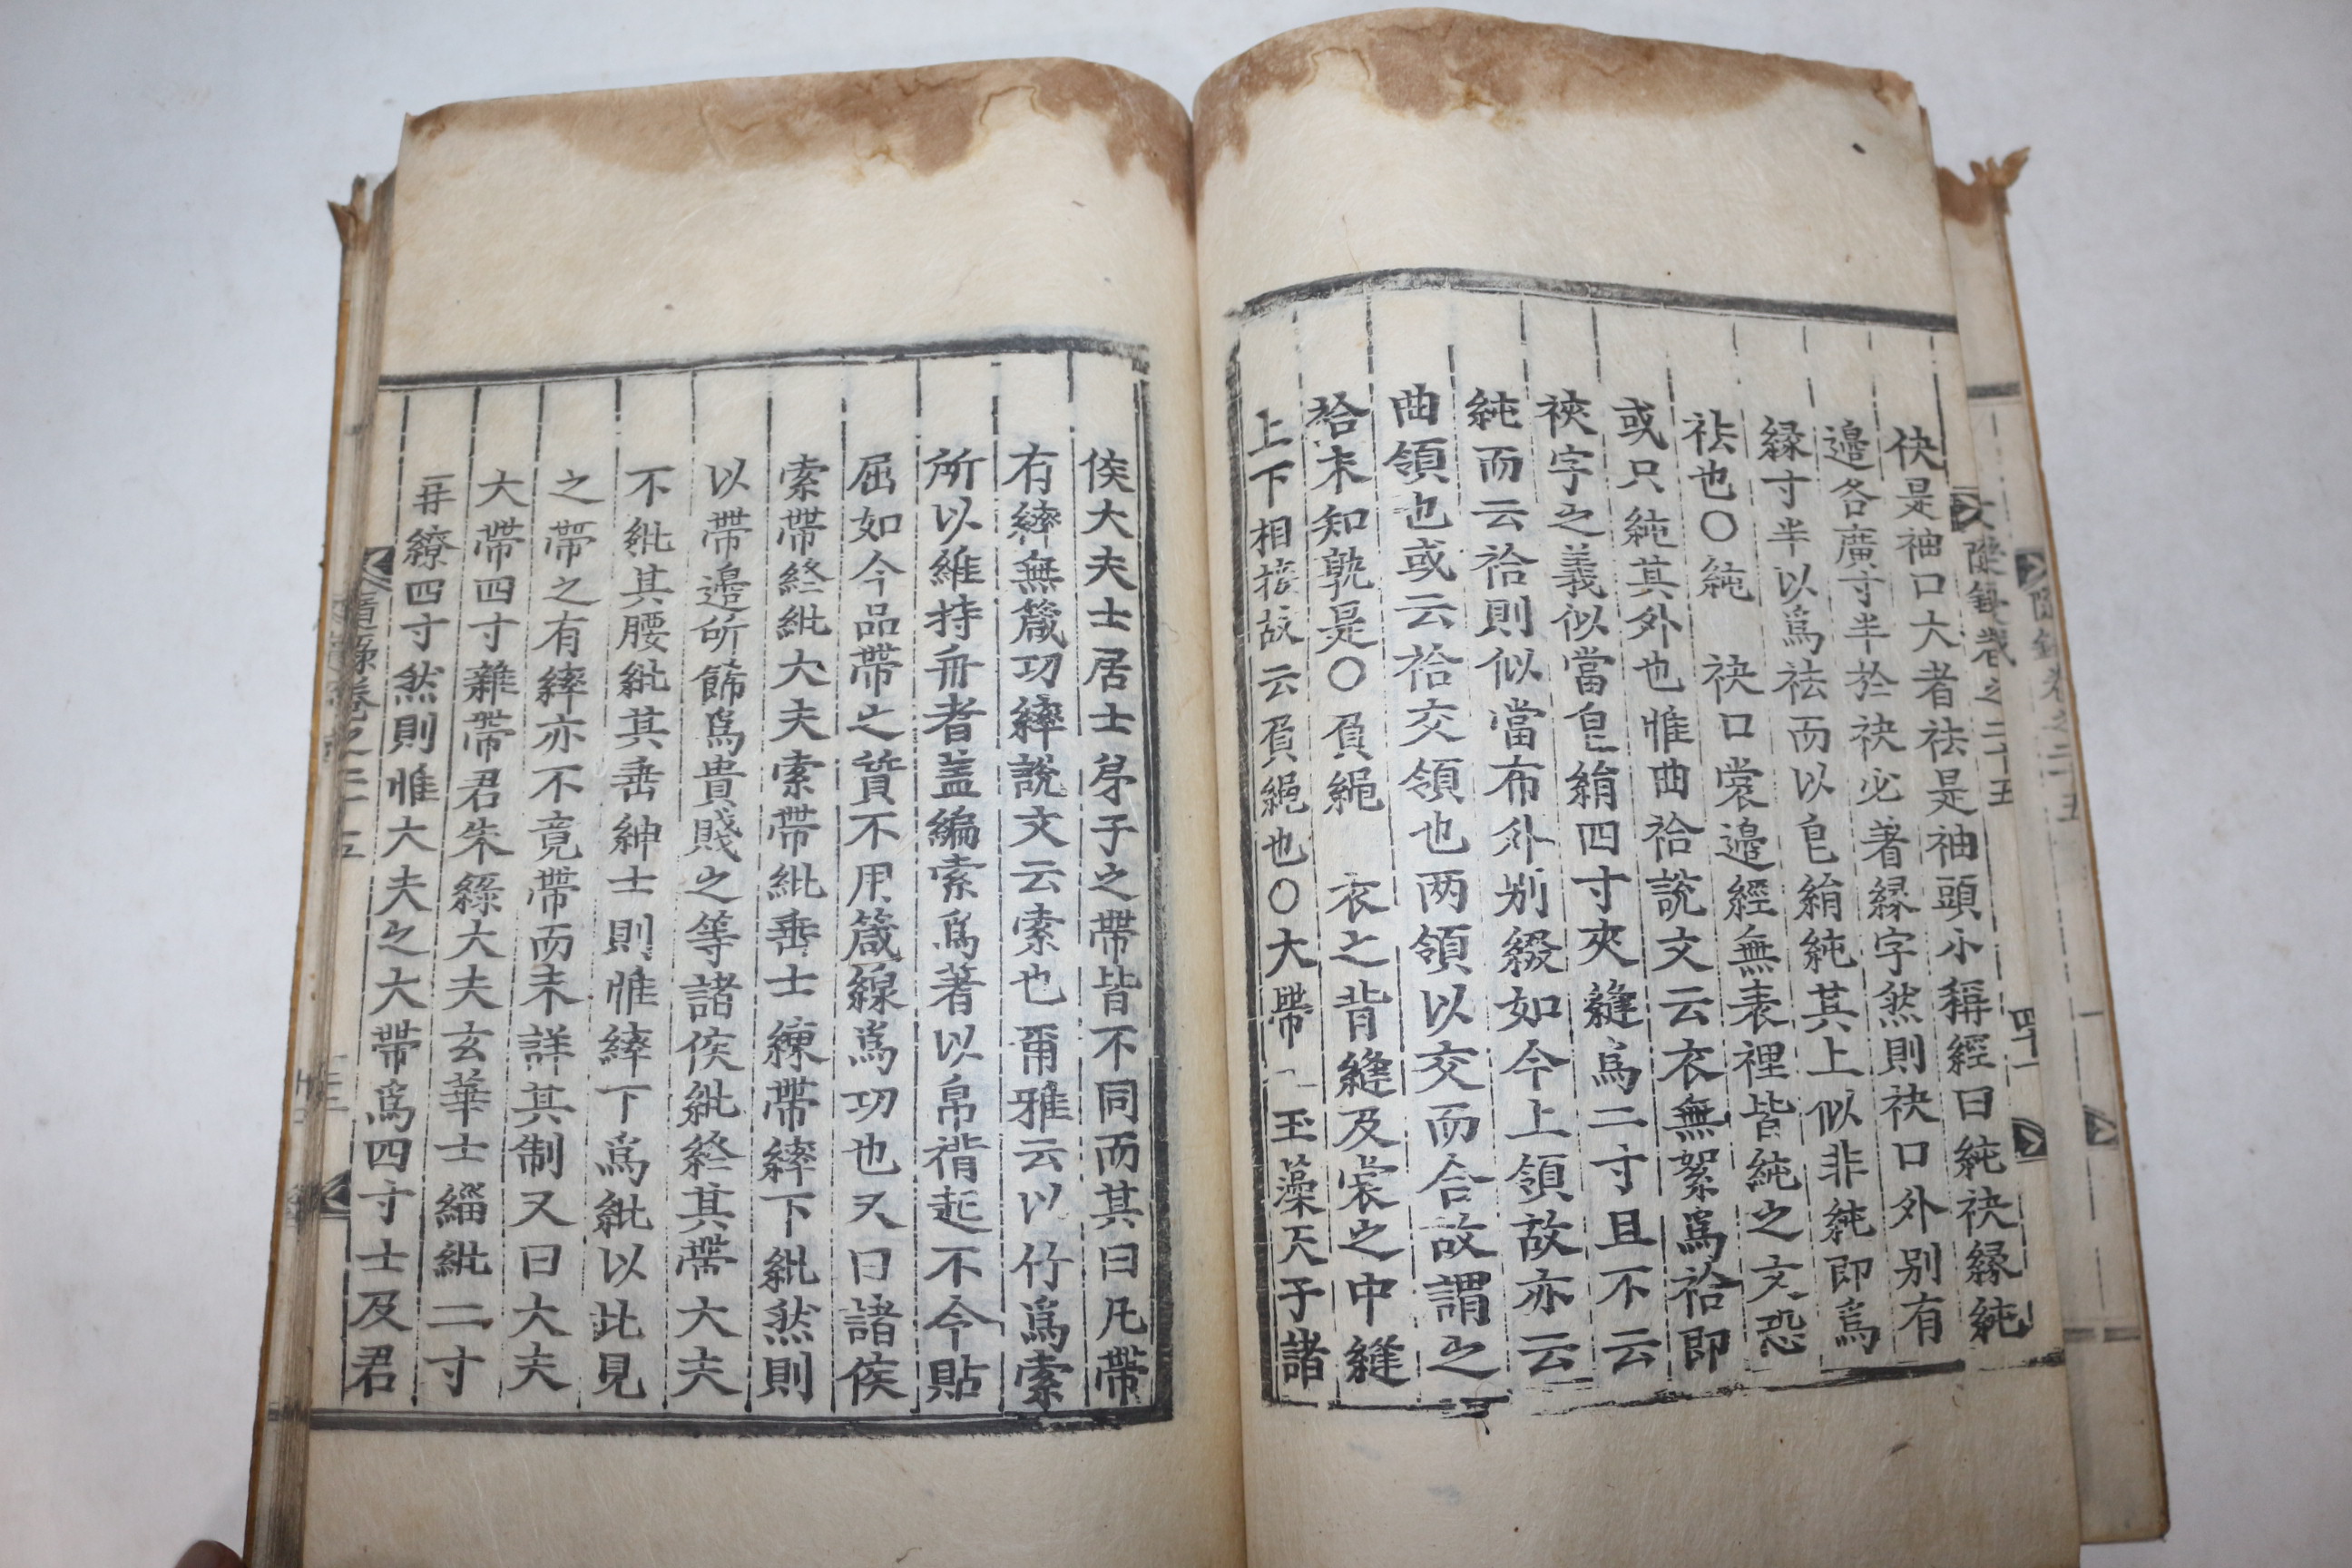 袂是袖口大者袪是袖頭小稱經曰純袂緣純
邊各廣寸半於袂必著緣字然則袂口外别有
緣寸半以爲袪而以皂絹純其上似非純即爲
袪也○純 袂口裳邊經無表裡皆純之文恐
或只純其外也惟曲袷說文云衣無絮爲袷即
裌字之義似當皂絹四寸夾縫爲二寸且不云
純而云袷則似當布外别綴如今上領故亦云
曲領也或云袷交領也两領以交而合故謂之
袷未知孰是○負繩 衣之背縫及裳之中縫
上下相接故云負繩也○大帶 玉藻天子諸
侯大夫士居士弟子之帶皆不同而其曰凡帶
有繂無箴功繂說文云索也爾雅云以竹爲索
所以維持舟者盖編索爲著以帛褙起不今貼
屈如今品帶之質不用箴線爲功也又曰諸侯
索帶終紕大夫索帶紕垂士練帶繂下紕然則
以帶邊所飾爲貴賤之等諸侯紕終其帶大夫
不紕其腰紕其垂紳士則惟繂下爲紕以此見
之帶之有繂亦不竟帶而未詳其制又曰大夫
大帶四寸雜帶君朱綠大夫玄華士緇紕二寸
再繚四寸然則惟大夫之大帶爲四寸士及君